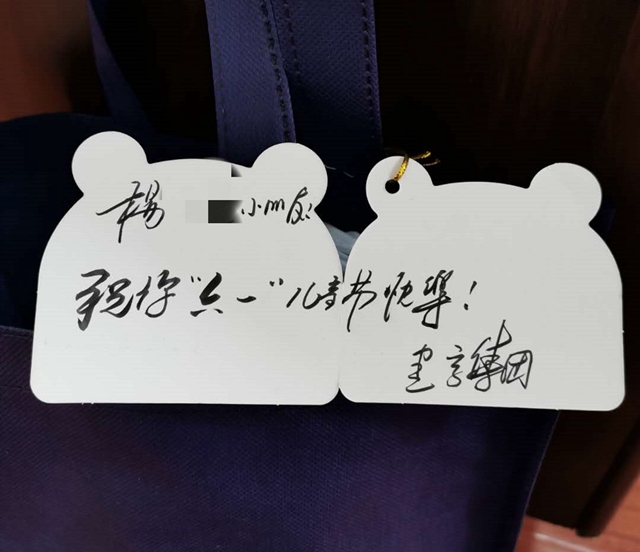 楊 小朋友:
祝你“六一”儿童节快樂!
建言集团